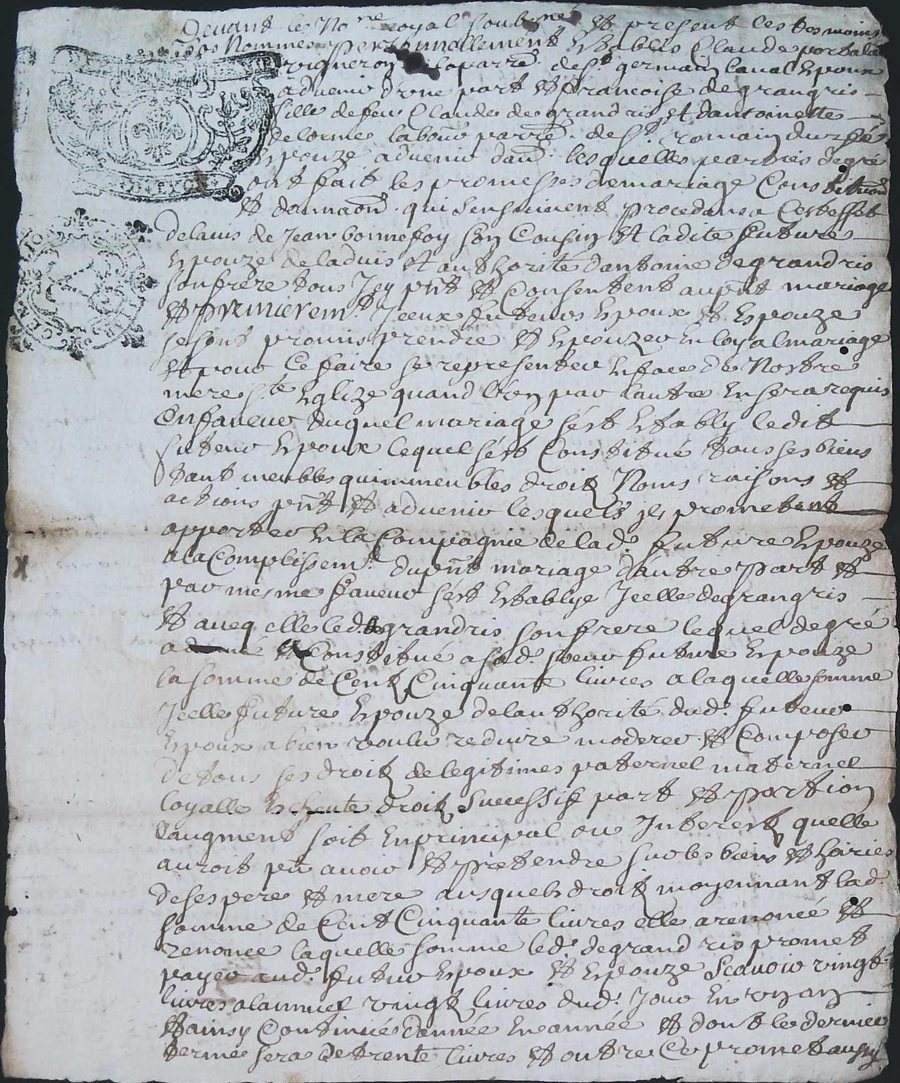 Devant le No.re royal soub.né et present les tesmoins
bas Nommes personnellement Establis Claude
vigneron laparre de S.t germain laual Epoux
aduenir d'une part et francoise degrangris
fille de feu Claude de grandris et dantoinette
delorme labour parre de S.t romain durfé
Epouze aduenir dau. lesquelles parties degré
ont fait les promesses de mariage Constitu.on
et donnaon. qui sensuiuent procedans a Cest effet
delauis de Jean bonnefoy son Cousin et ladite future
Epouze de laduis et authorité dantoine degrandris
son frere tous Icy pnt et Consentent au pnt mariage
et premierem.t Iceux futurs Epoux et Epouze
se sont promis prendre et Epouzer en loyal mariage
et pour Ce faire se representer en face de Nostre
mere s.te Eglize quand l'un par lautre en sera requis
en faueur duquel mariage s'est Estably ledit
futeur Epoux lequel s'est Constitué tous ses biens
tant meubles quimmeubles droitz Noms raisons et
actions pnt et aduenir lesquels jl promettent
apporter en la Compagnie de lad. future Epouze
a la Complissem.t du pnt mariage dautre part et
par mesme faueur s'est Establye Icelle degrangris
et aueq elle led. degrandris son frere lequel de gré
a Constitué a sad. soeur future Epouze
la somme de Cent Cinquante liures a laquelle somme
Icelle future Epouze de lauthorité dud. futeur
Epoux a bien voulu reduire moderer et Composer
de tous ses droitz de legitimes paternel maternel
loyalle Escheute droitz successif part et portion
laugment soit en principal ou Interestz quelle
auroit pu auoir et pretendre sur les biens et hoiries
de ses pere et mere ausquels droitz moyennant lad.
somme de Cent Cinquante liures elle a renoncé et
renonce laquelle somme led. degrandris promet
payer aud. futur Epoux et Epouze Scauoir vingt
liures vingt liures dud. Jour en vn an
et ainsy Continuer dannée en année et dont le dernier
terme sera de trente liures et outre Ce promet aussy